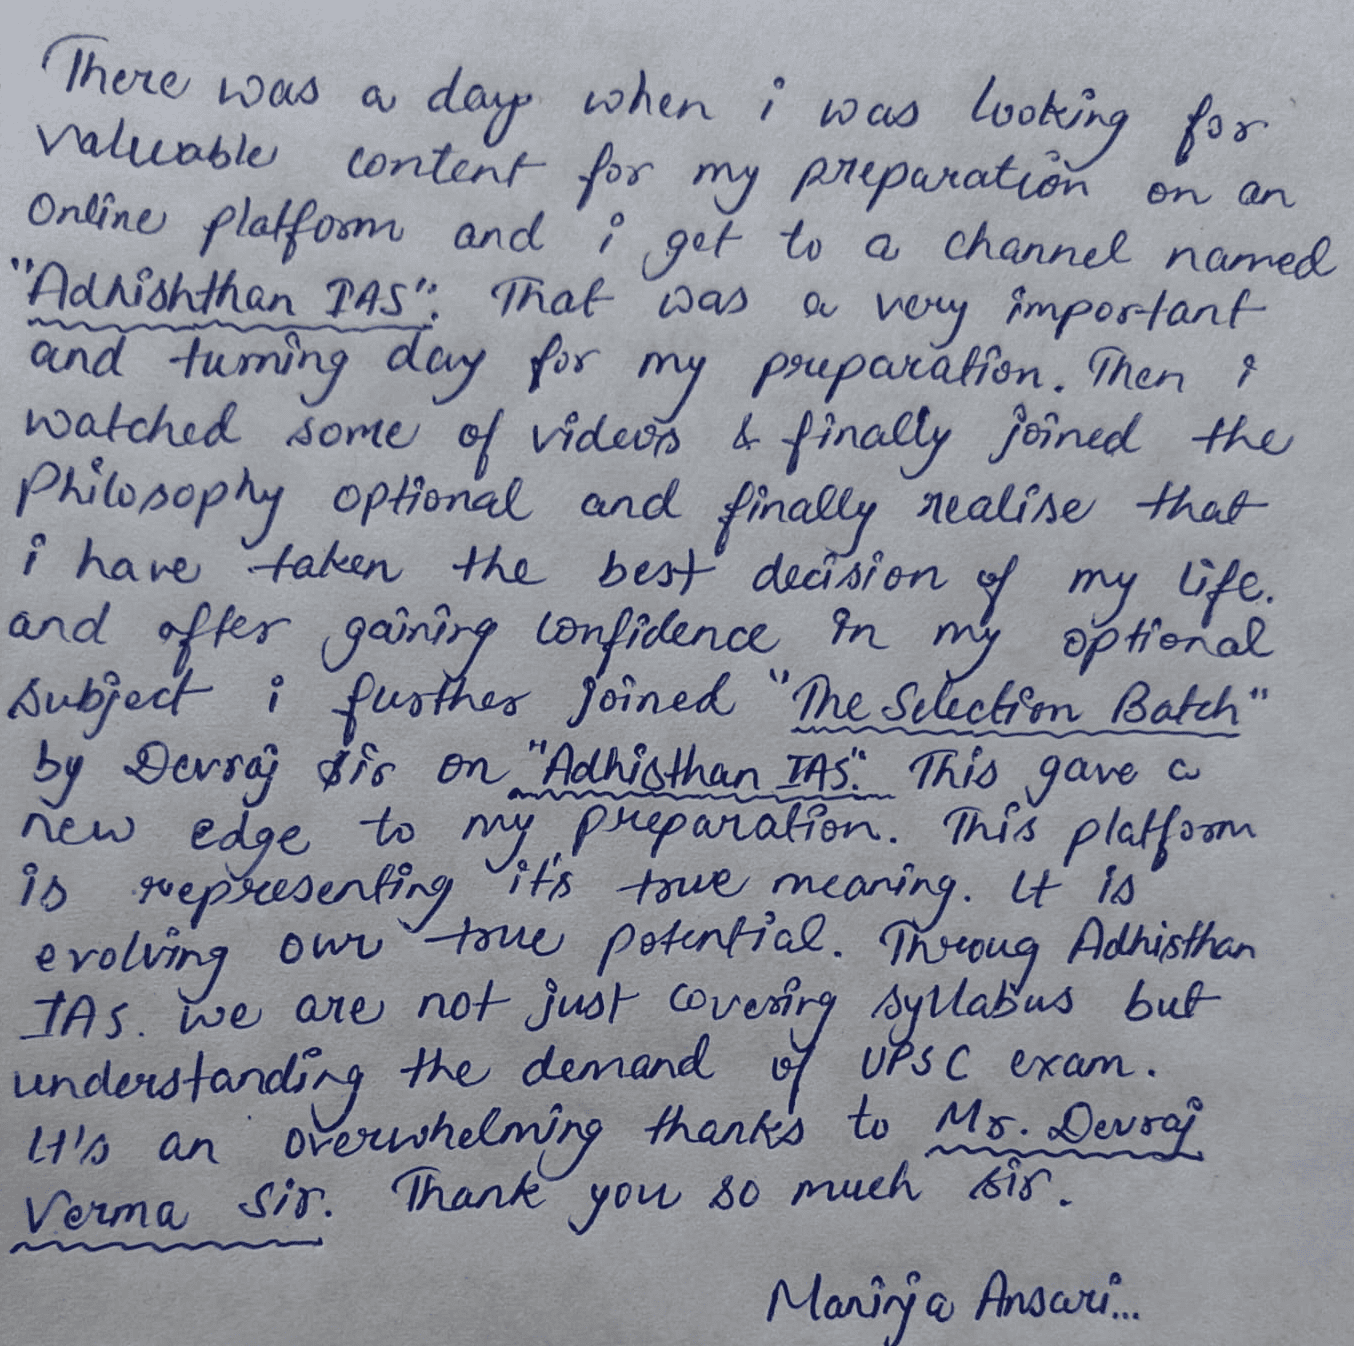 There was a day when i was looking for
valuable content for my preparation on an
online platform and i get to a channel named
"Adhishthan IAS". That was a very important
and turning day for my preparation. Then i
watched some of videos & finally joined the
Philosophy optional and finally realise that
i have taken the best decision of my life.
and after gaining confidence in my optional
subject i further joined "The Selection Batch"
by Devraj Sir on "Adhisthan IAS". This gave a
new edge to my preparation. This platform
is representing it's true meaning. It is
evolving our true potential. Throug Adhisthan
IAS. we are not just covering syllabus but
understanding the demand of UPSC exam.
It's an overwhelming thanks to Mr. Devraj
Verma Sir. Thank you so much sir.
Ansari...